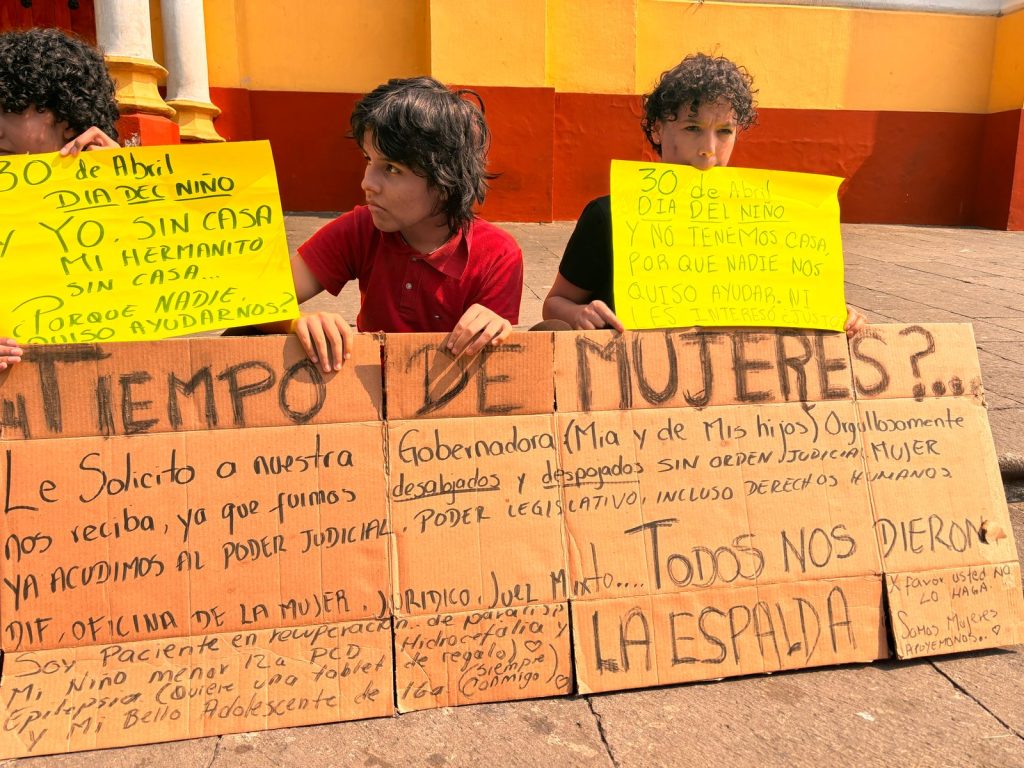 30 de Abril
DIA DEL NIÑO
Y YO, SIN CASA
MI HERMANITO
SIN CASA...
¿PORQUE NADIE,
QUISO AYUDARNOS?
30 de Abril
DIA DEL NIÑO
Y NO TENEMOS CASA,
PORQUE NADIE NOS
QUISO AYUDAR. NI
LES INTERESÓ
¿TIEMPO DE MUJERES?...
Le Solicito a nuestra Gobernadora (Mia y de Mis hijos) Orgullosamente MUJER
nos reciba, ya que fuimos desalojados y despojados SIN ORDEN JUDICIAL
YA ACUDIMOS AL PODER JUDICIAL, PODER LEGISLATIVO, INCLUSO DERECHOS HUMANOS
DIF, OFICINA DE LA MUJER, JURIDICO, Juez Mixto.... ¡TODOS NOS DIERON
LA ESPALDA
Soy Paciente en recuperación de
Mi Niño menor 12a PCD Hidrocefalia y
Epilepsia (Quiere una tablet de regalo)
y Mi Bello Adolescente de 16a (siempre conmigo)
X favor usted NO
LO HAGA.
Somos Mujeres
APOYEMONOS..